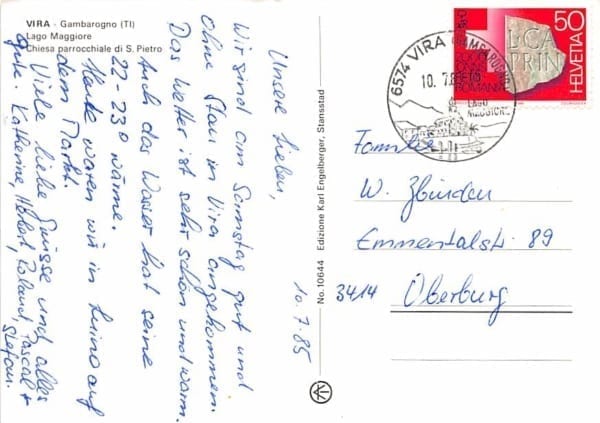 VIRA - Gambarogno (TI)
Lago Maggiore
Chiesa parrocchiale di S. Pietro
10.7.85
Unsere Lieben,
Wir sind am Samstag gut und
ohne Stau in Vira angekommen.
Das Wetter ist sehr schön und warm.
Auch das Wasser hat seine
22-23° wärme.
Heute waren wir in Luino auf
dem Markt.
Viele liebe Grüsse und alles
Gute. Katherine, Hubert, Roland, Pascal +
Stefan.
No. 10644 Edizione Karl Engelberger, Stansstad
6574 VIRA (GAMBAROGNO)
10.7.85
LAGO
MAGGIORE
50
HELVETIA
2000
ROMAN
L·CA
PRIN
Familie
W. Zbinden
Emmentalstr. 89
3414 Oberburg